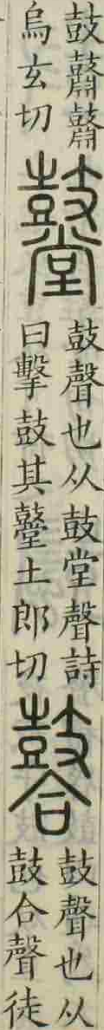 鼓鼘鼘
烏玄切
鼞
鼓聲也从鼓堂聲詩
曰擊鼓其鼞土郎切
鼓聲也从
鼓合聲徒